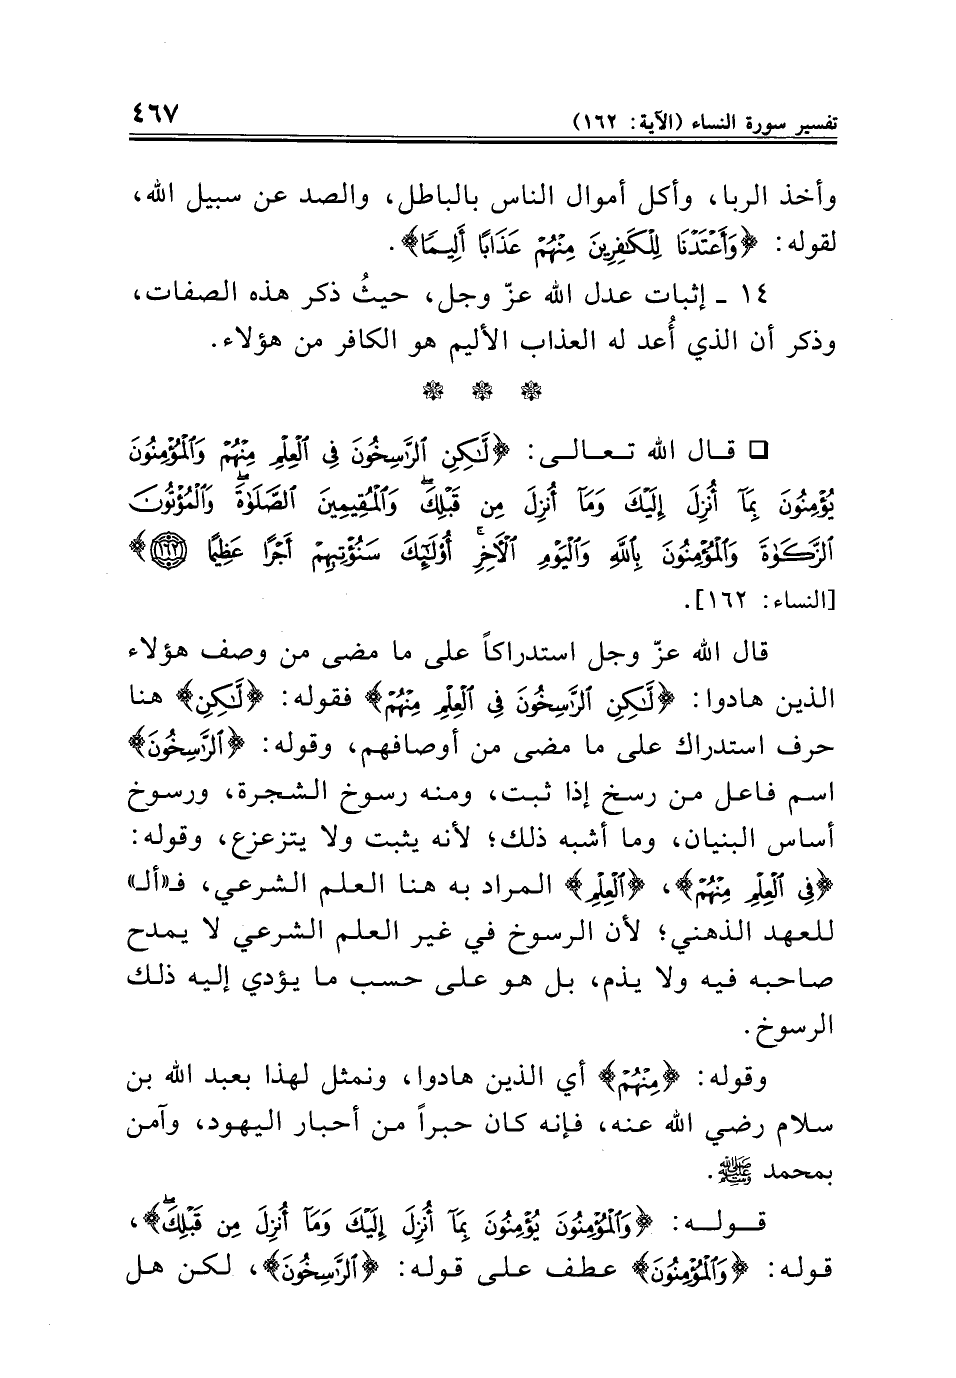 تفسير سورة النساء (الآية: ١٦٢) ٤٦٧
وأخذ الربا، وأكل أموال الناس بالباطل، والصد عن سبيل الله،
لقوله: ﴿وَأَعْتَدْنَا لِلْكَٰفِرِينَ مِنْهُمْ عَذَابًا أَلِيمًا﴾.
١٤ ـ إثبات عدل الله عزّ وجل، حيثُ ذكر هذه الصفات،
وذكر أن الذي أُعد له العذاب الأليم هو الكافر من هؤلاء.
❁ ❁ ❁
❑ قال الله تعالى: ﴿لَّٰكِنِ ٱلرَّٰسِخُونَ فِى ٱلْعِلْمِ مِنْهُمْ وَٱلْمُؤْمِنُونَ
يُؤْمِنُونَ بِمَآ أُنزِلَ إِلَيْكَ وَمَآ أُنزِلَ مِن قَبْلِكَ ۚ وَٱلْمُقِيمِينَ ٱلصَّلَوٰةَ ۚ وَٱلْمُؤْتُونَ
ٱلزَّكَوٰةَ وَٱلْمُؤْمِنُونَ بِٱللَّهِ وَٱلْيَوْمِ ٱلْءَاخِرِ ۚ أُو۟لَٰٓئِكَ سَنُؤْتِيهِمْ أَجْرًا عَظِيمًا ١٦٢﴾
[النساء: ١٦٢].
قال الله عزّ وجل استدراكاً على ما مضى من وصف هؤلاء
الذين هادوا: ﴿لَّٰكِنِ ٱلرَّٰسِخُونَ فِى ٱلْعِلْمِ مِنْهُمْ﴾ فقوله: ﴿لَّٰكِنِ﴾ هنا
حرف استدراك على ما مضى من أوصافهم، وقوله: ﴿ٱلرَّٰسِخُونَ﴾
اسم فاعل من رسخ إذا ثبت، ومنه رسوخ الشجرة، ورسوخ
أساس البنيان، وما أشبه ذلك؛ لأنه يثبت ولا يتزعزع، وقوله:
﴿فِى ٱلْعِلْمِ مِنْهُمْ﴾، ﴿ٱلْعِلْمِ﴾ المراد به هنا العلم الشرعي، فـ«ألـ»
للعهد الذهني؛ لأن الرسوخ في غير العلم الشرعي لا يمدح
صاحبه فيه ولا يذم، بل هو على حسب ما يؤدي إليه ذلك
الرسوخ.
وقوله: ﴿مِنْهُمْ﴾ أي الذين هادوا، ونمثل لهذا بعبد الله بن
سلام رضي الله عنه، فإنه كان حبراً من أحبار اليهود، وآمن
بمحمد ﷺ.
قوله: ﴿وَٱلْمُؤْمِنُونَ يُؤْمِنُونَ بِمَآ أُنزِلَ إِلَيْكَ وَمَآ أُنزِلَ مِن قَبْلِكَ ۚ﴾،
قوله: ﴿وَٱلْمُؤْمِنُونَ﴾ عطف على قوله: ﴿ٱلرَّٰسِخُونَ﴾، لكن هل